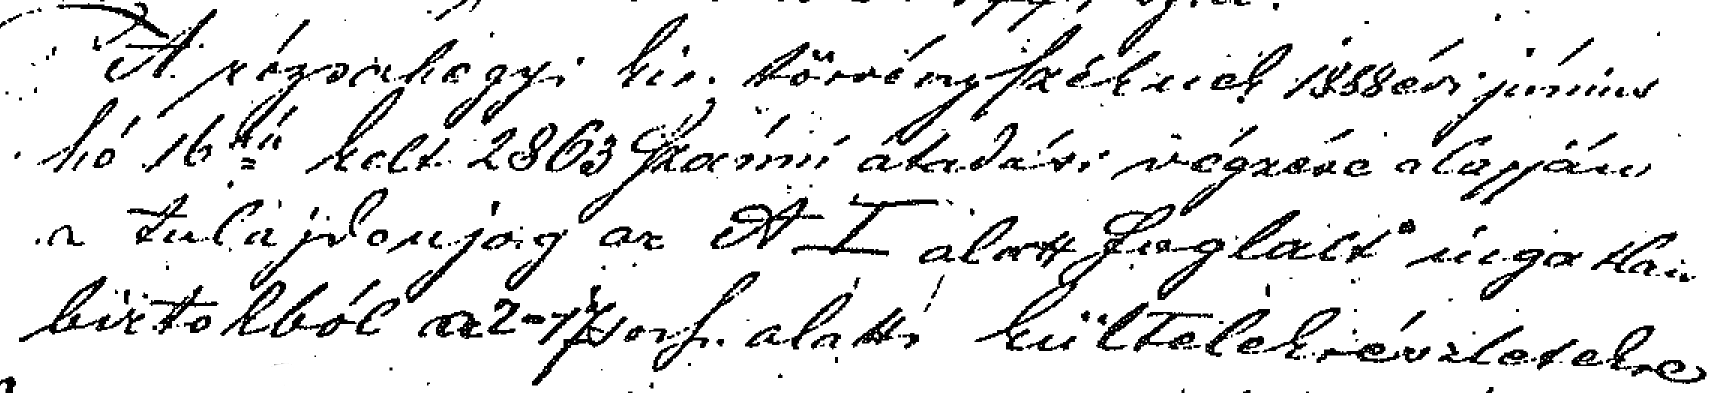 A rózsahegyi kir. törvényszéknek 1888 évi június
hó 16 án kelt 2863 számú átadási végzése alapján
a tulajdonjog az A I alatt foglalt ingatlan
birtokból a 2-17 sorsz. alatti kültelekrészletekre